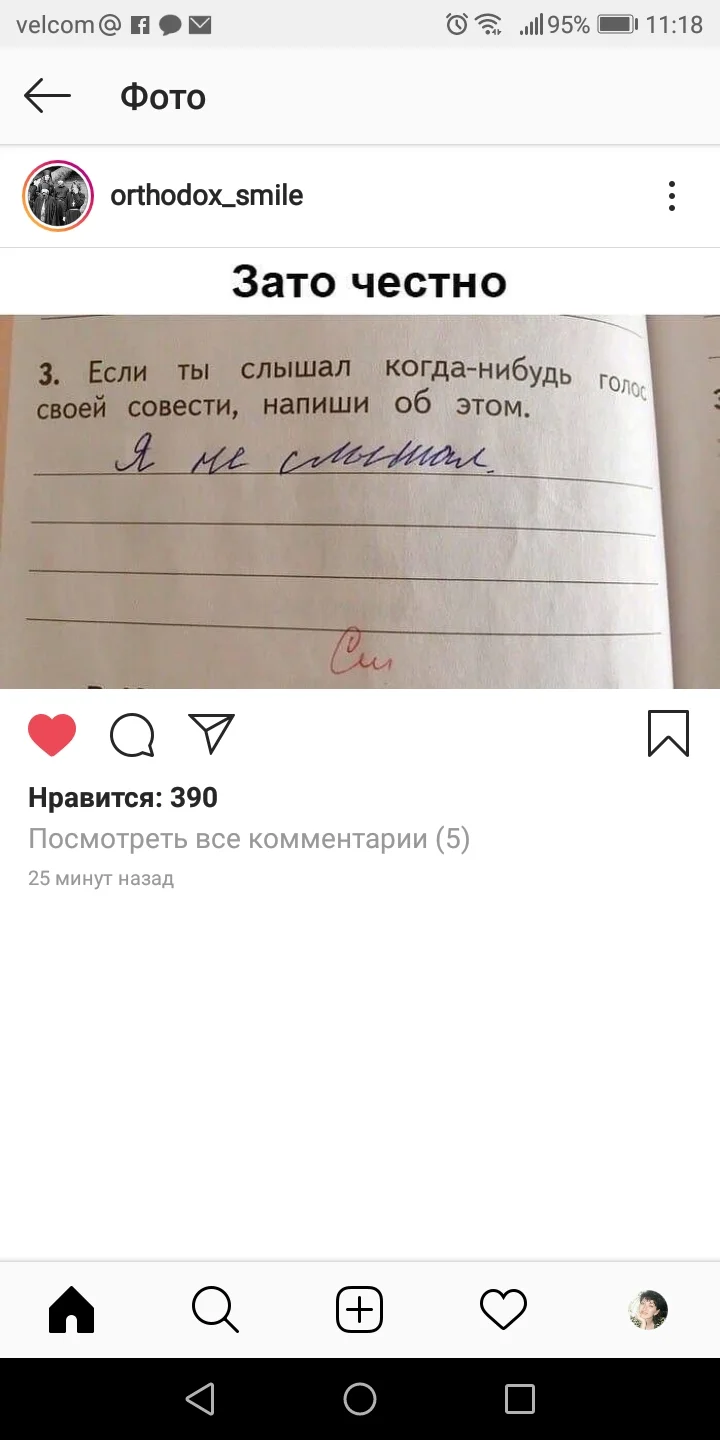 velcom@ 95% 11:18
Фото
orthodox_smile
Зато честно
3. Если ты слышал когда-нибудь голос
своей совести, напиши об этом.
Я не слышал.
См
Нравится: 390
Посмотреть все комментарии (5)
25 минут назад